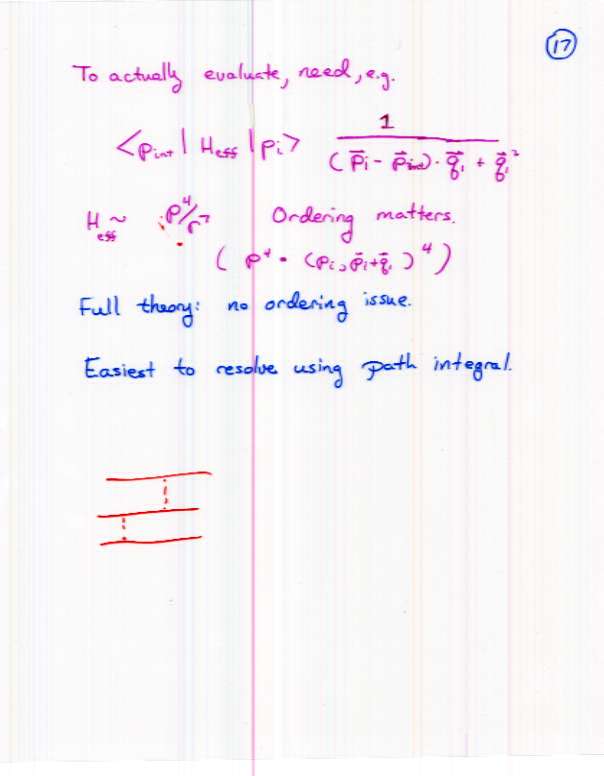 17
To actually evaluate, need, e.g.
<p_int | H_eff | p_i> 1 / ((p⃗_i - p⃗_int)·q⃗_1 + q⃗_1²)
H_eff ~ p⁴/r⁷ Ordering matters.
( p⁴ = (p_i, p⃗_i+q⃗_1 )⁴)
Full theory: no ordering issue.
Easiest to resolve using path integral.